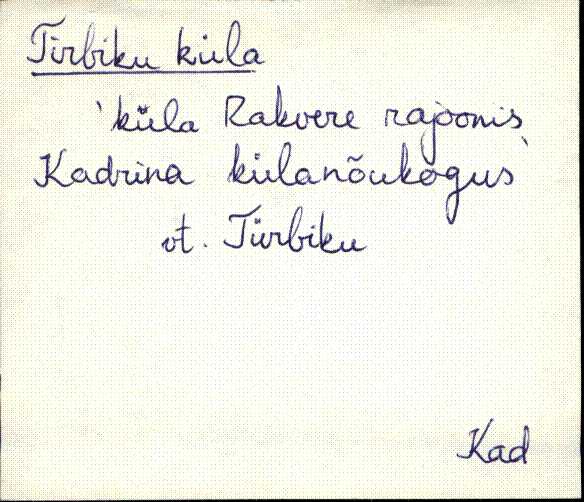 Tirbiku küla
'küla Rakvere rajoonis
Kadrina külanõukogus'
vt. Türbiku
Kad